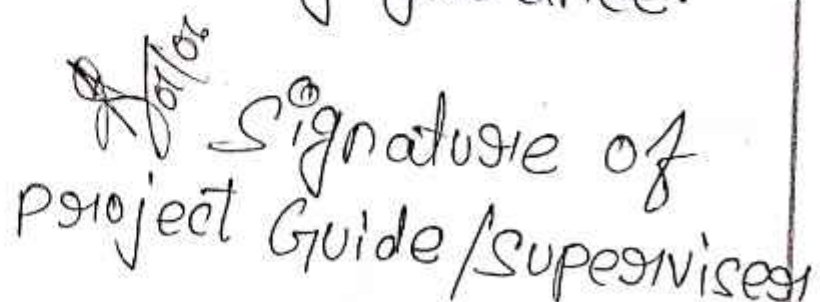 01/06
Signature of
Project Guide/Superviser